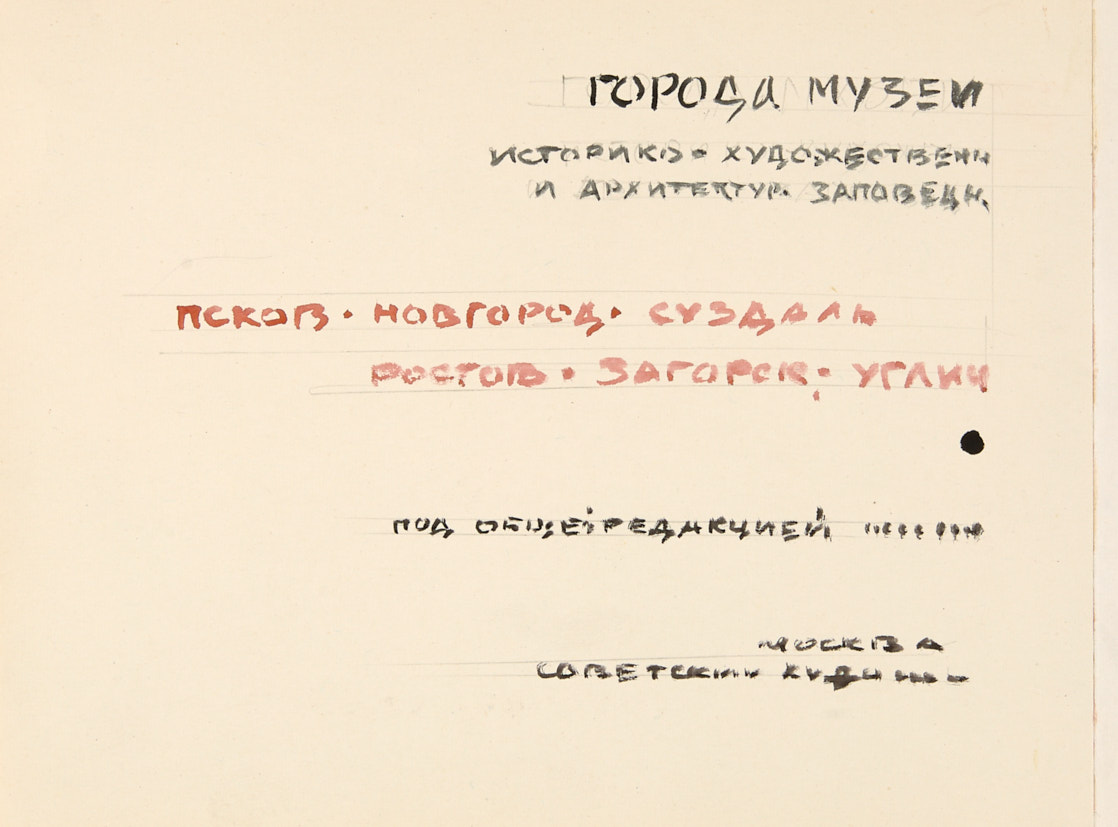 ГОРОДА МУЗЕИ
ИСТОРИКО - ХУДОЖЕСТВЕНН
И АРХИТЕКТУР. ЗАПОВЕДН.
ПСКОВ · НОВГОРОД · СУЗДАЛЬ
РОСТОВ · ЗАГОРСК · УГЛИЧ
ПОД ОБЩЕЙ РЕДАКЦИЕЙ
МОСКВА
СОВЕТСКИЙ